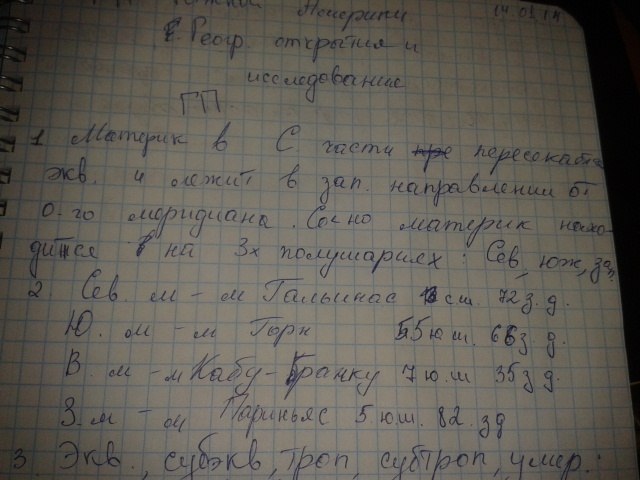 Южной Америки 14.01.14
Геогр. открытия и
исследование
ГП.
1 Материк в С части пересекаетс
экв. и лежит в зап. направлении от
0-го меридиана. Соно материк нахо-
дитсе на 3х полушариях: Сев, юж, зап.
2 Сев. м - м Гальинас сш. 72 з. д.
Ю. м - м Горн 55 ю.ш. 66 з. д.
В. м - м Кабу-Бранку 7 ю.ш 35 з д.
З. м - м Париньяс 5 ю.ш. 82. з д
3. Экв., субэкв, троп, субтроп, умер.